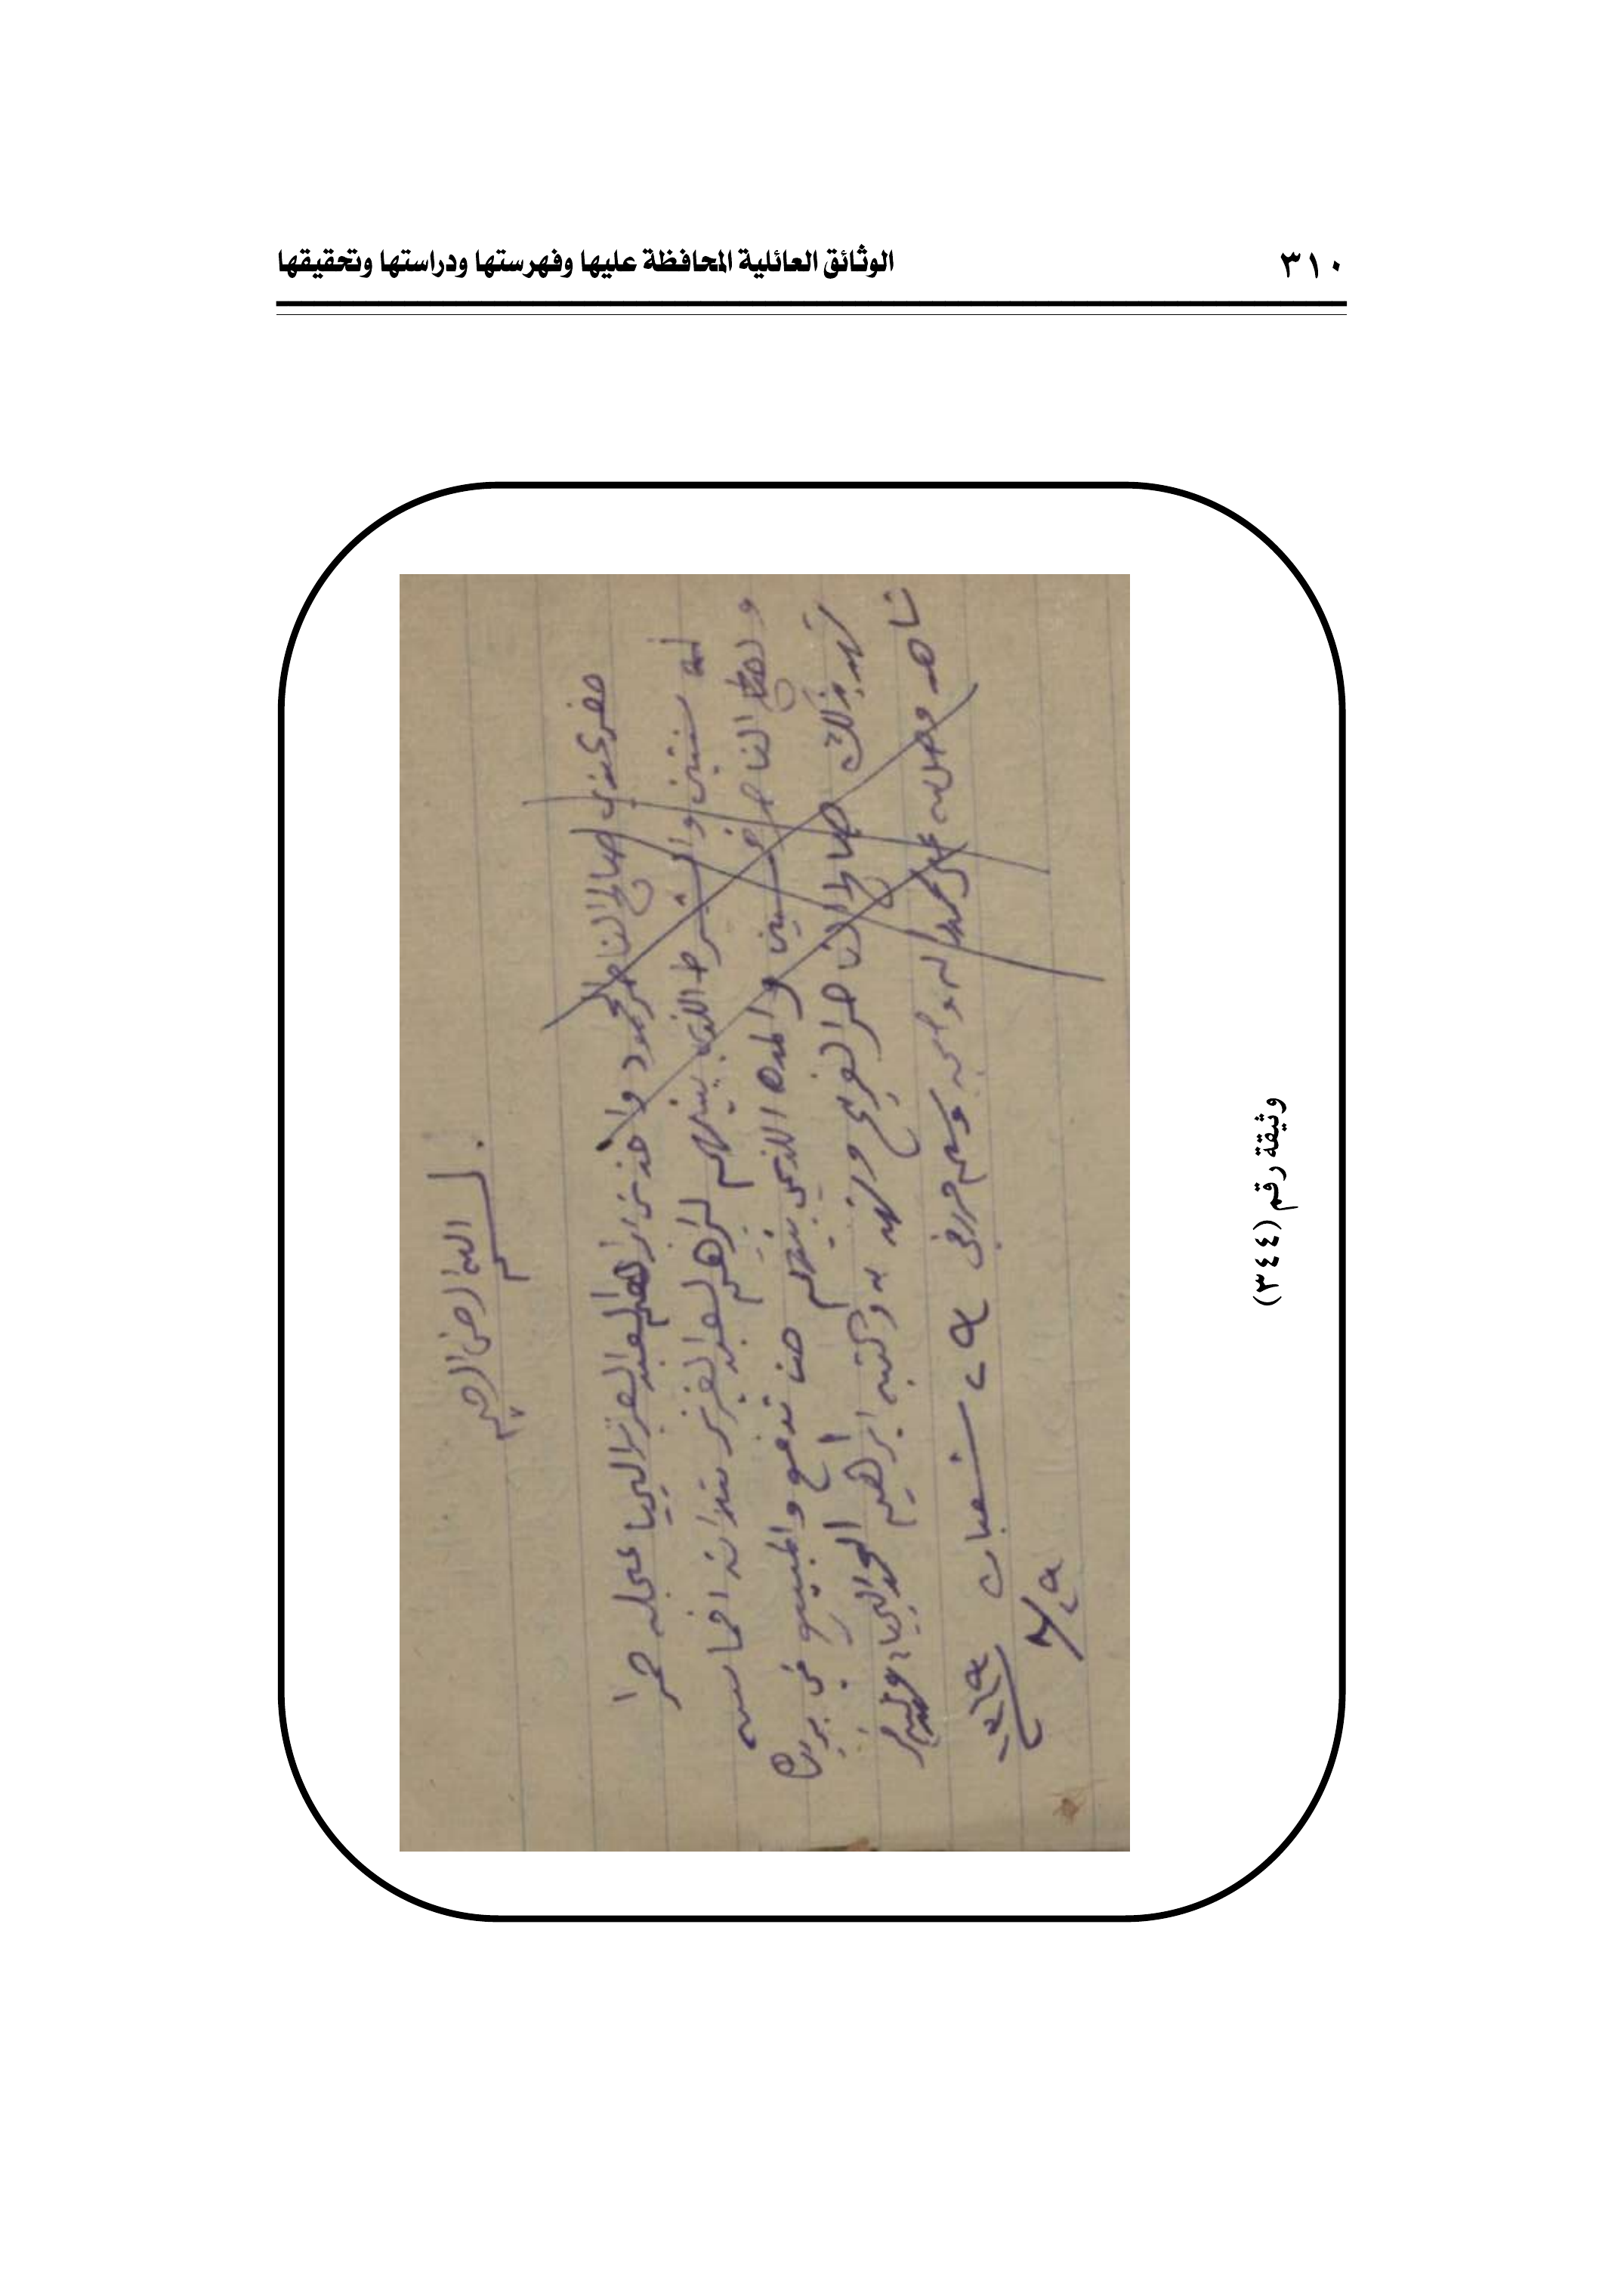 ٣١٠
الوثائق العائلية المحافظة عليها وفهرستها ودراستها وتحقيقها
بسم الله الرحمن الرحيم
حضر عندي صالح الناصر المحمود واخذ من ابراهيم العبد العزيز اليحيا عجله حمرا
لمد سنتين والشرط الذي بينهم لبراهيم العبد العزيز ثلاثة اخماسه
ولصالح الناصر خمسين والمده الذي بينهم حتا تدفع والمبيع في
شهد بذلك صالح الناصر الفريح وشهد به وكتبه ابراهيم المحمد
شاهد وصلى الله على محمد اله وصحبه وسلم حرر في ٢٩ شعبان
وثيقة رقم (٣٤٤)